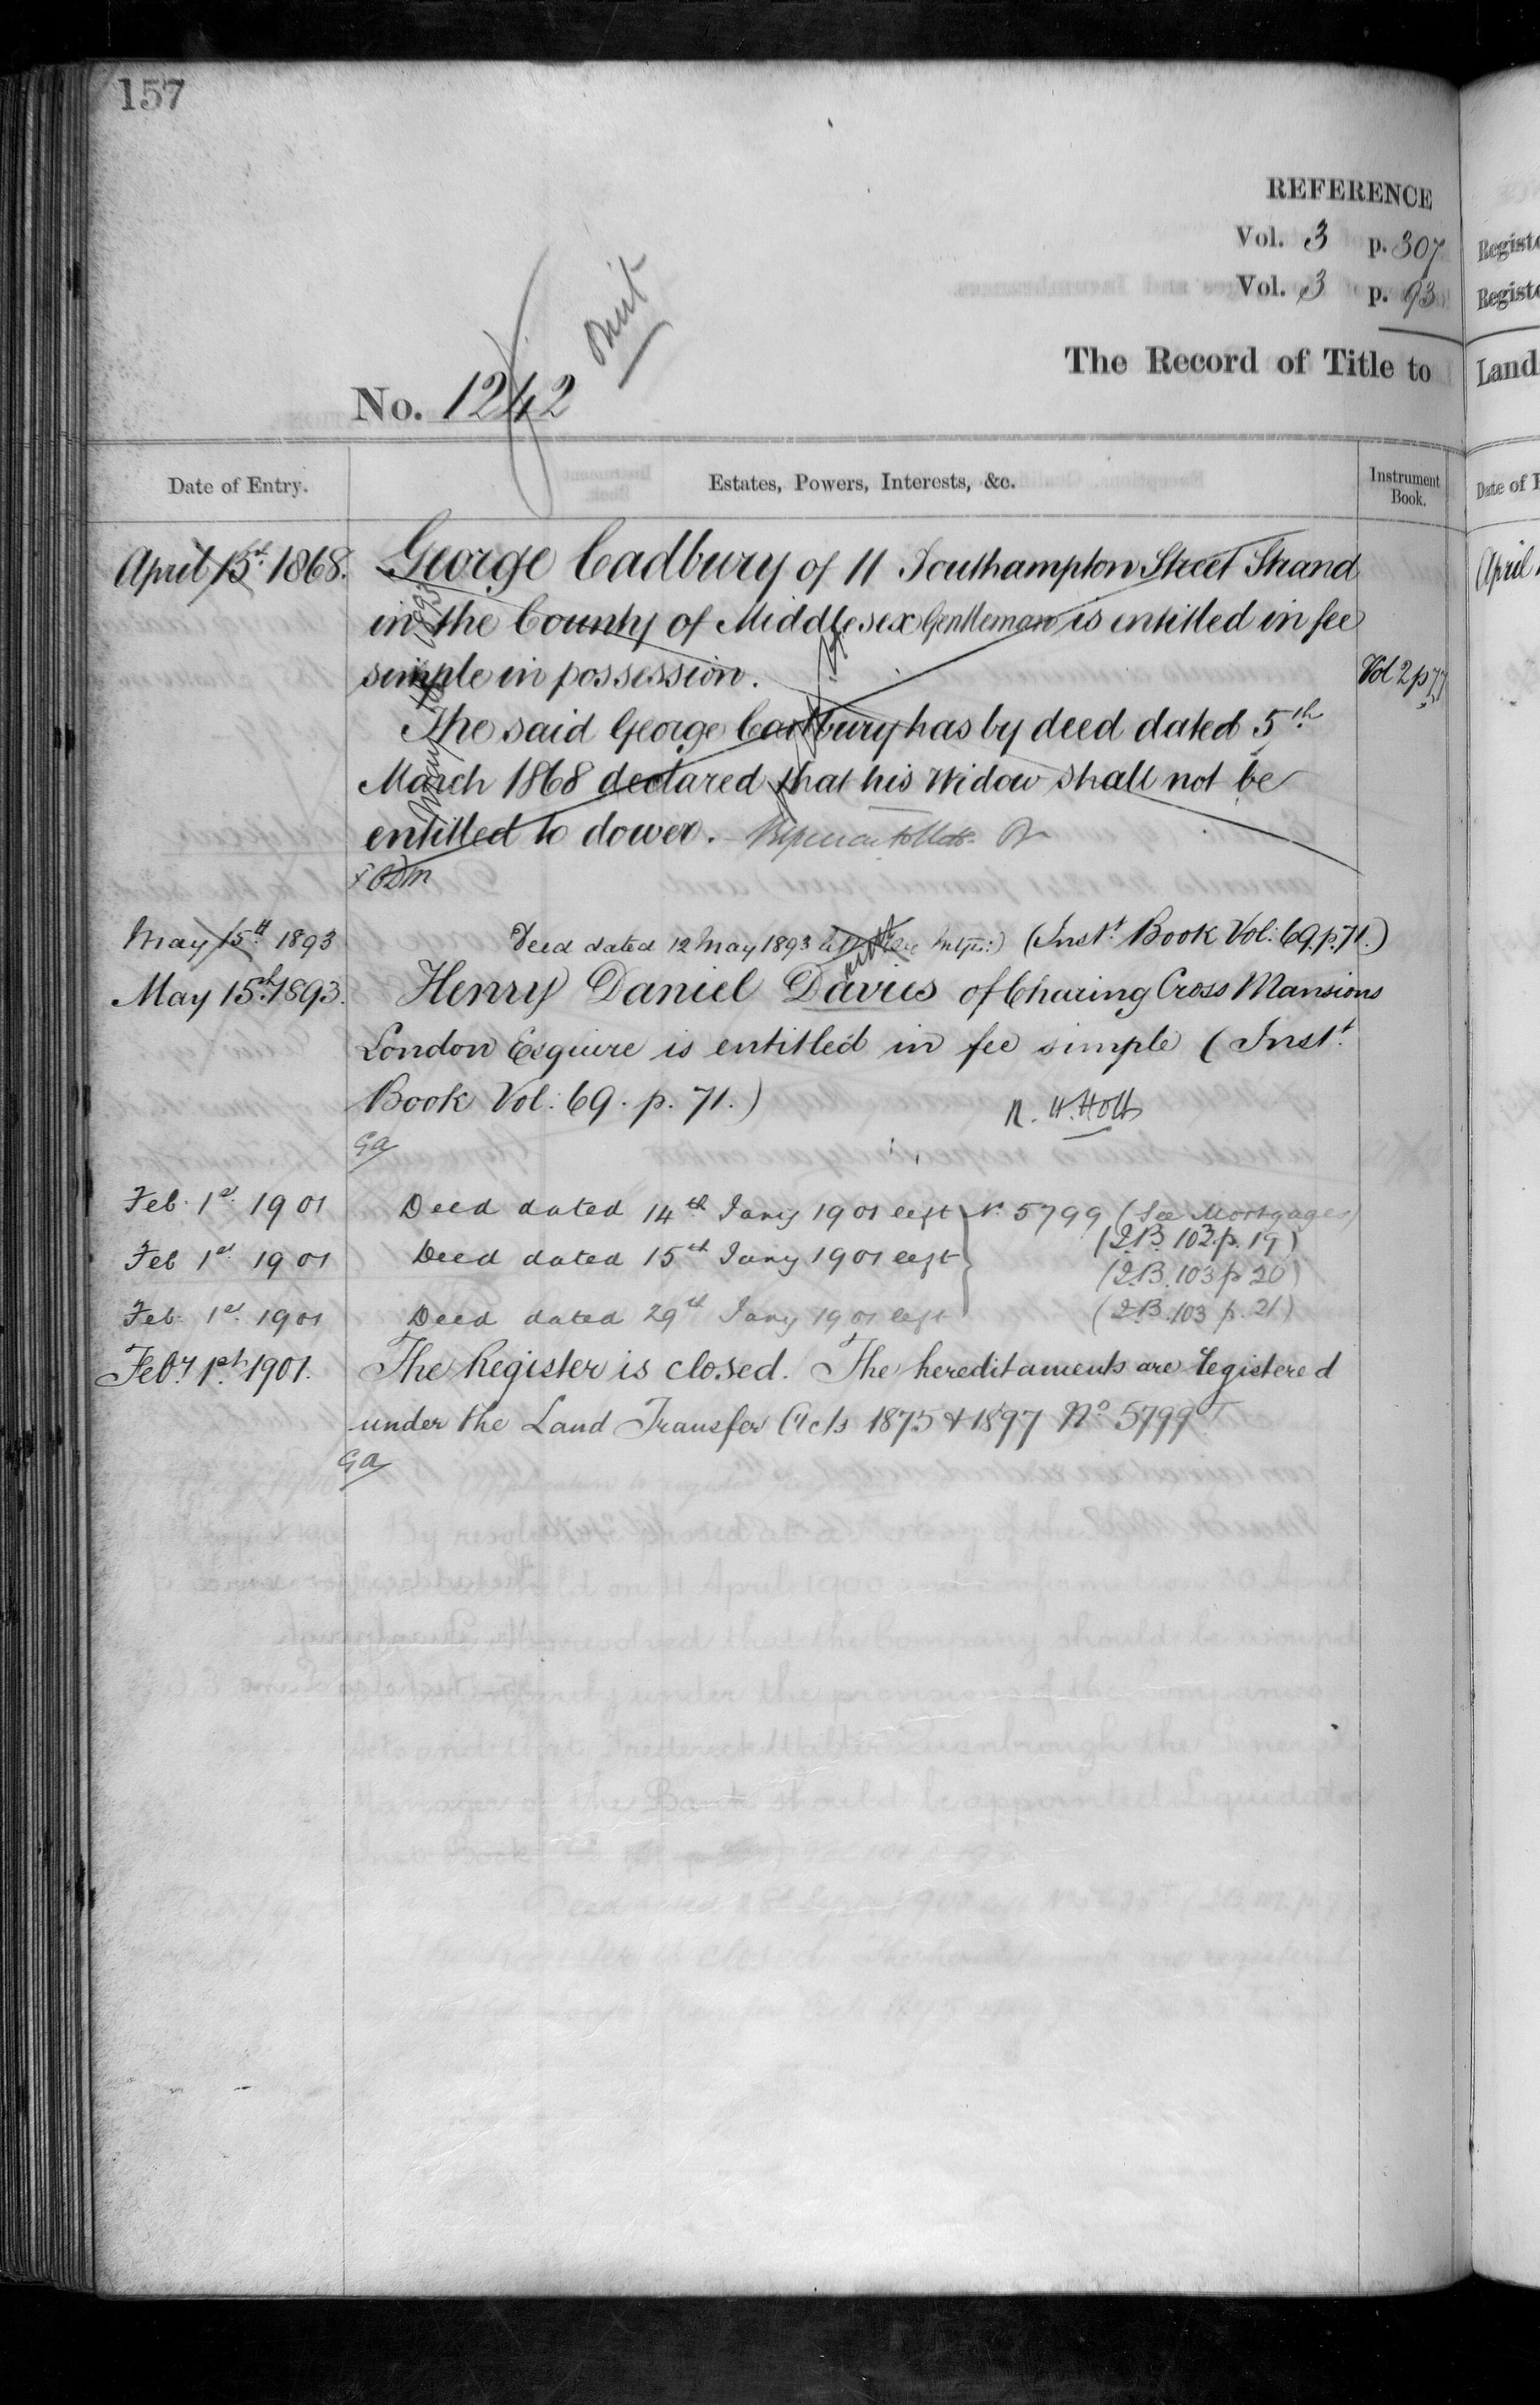 157
REFERENCE
Vol. 3 p. 307
Vol. 3 p. 93
The Record of Title to
No. 1242
Date of Entry.
Estates, Powers, Interests, &c.
Instrument Book.
April 1868. George Cadbury of 11 Southampton Street Strand
in the County of Middlesex Gentleman is entitled in fee
simple in possession.
Vol 2 p 77
The said George Cadbury has by deed dated 5th
March 1868 declared that his Widow shall not be
entitled to dower.
May 15th 1893 Deed dated 12 May 1893 (Inst. Book Vol: 69. p. 71.)
May 15th 1893. Henry Daniel Davies of Charing Cross Mansions
London Esquire is entitled in fee simple (Inst.
Book Vol: 69. p. 71.)
R. H. Holt
GA
Feb. 1st 1901 Deed dated 14th Jany 1901 left No. 5799 (See Mortgages)
(I.B. 103 p. 19)
Feb 1st 1901 Deed dated 15th Jany 1901 left
(I.B. 103 p 20)
Feb. 1st 1901 Deed dated 29th Jany 1901 left (I.B. 103 p. 21)
Feby 1st 1901. The Register is closed. The hereditaments are registered
under the Land Transfer Acts 1875 & 1897 No 5799
GA
Registe
Registe
Land
Date of E
April